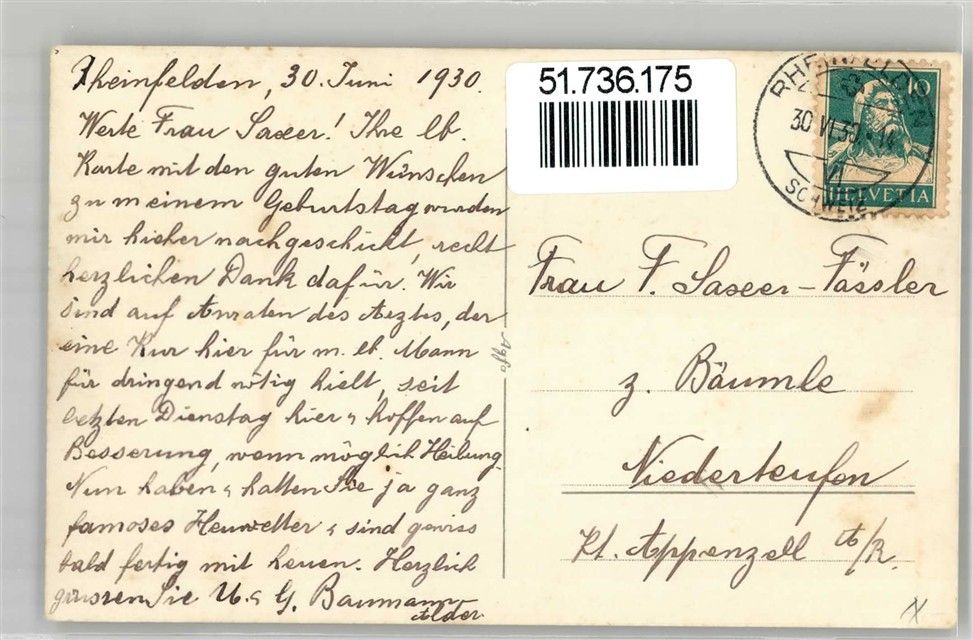 Rheinfelden, 30. Juni 1930.
Werte Frau Saxer! Ihre lb.
Karte mit den guten Wünschen
zu meinem Geburtstag wurden
mir hieher nachgeschickt, recht
herzlichen Dank dafür. Wir
sind auf Anraten des Arztes, der
eine Kur hier für m. lb. Mann
für dringend nötig hielt, seit
letzten Dienstag hier & hoffen auf
Besserung, wenn möglich Heilung.
Nun haben & hatten Sie ja ganz
famoses Heuwetter & sind gewiss
bald fertig mit heuen. Herzlich
grüssen Sie U. & G. Baumann-
Alder
Agfa
51.736.175
RHEINFELDEN
30 VI 30
SCHWEIZ
10
HELVETIA
Frau F. Saxer-Fässler
z. Bäumle
Niederteufen
Kt. Appenzell A/R.